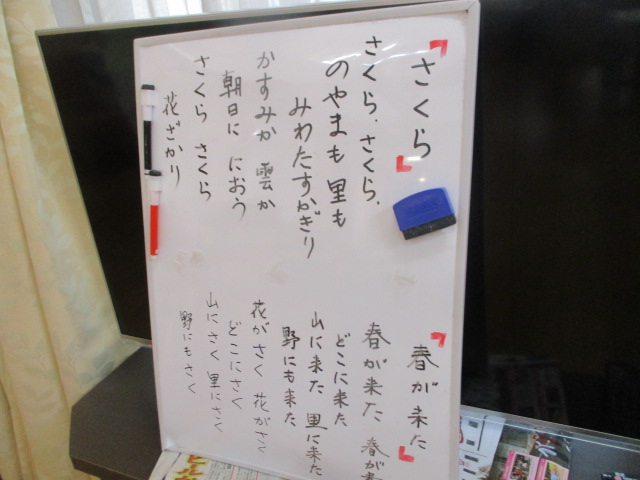 『さくら』
さくら、さくら、
のやまも里も
みわたすかぎり
かすみか 雲か
朝日に におう
さくら さくら
花ざかり
『春が来た』
春が来た 春が来
どこに来た
山に来た 里に来た
野にも来た
花がさく 花がさく
どこにさく
山にさく 里にさく
野にもさく